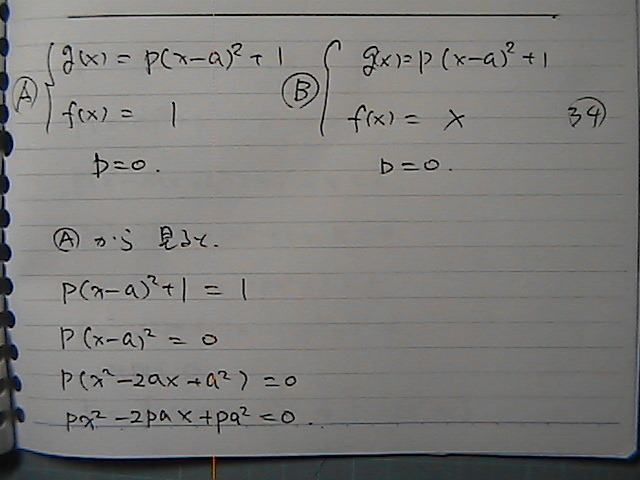 Ⓐ { g(x) = p(x-a)²+1
f(x) = 1
D=0.
Ⓑ { g(x)=p(x-a)²+1
f(x) = x
D=0.
㉞
Ⓐ から 見ると.
p(x-a)²+1 = 1
p(x-a)² = 0
p(x²-2ax+a²)=0
px²-2pax+pa²=0.